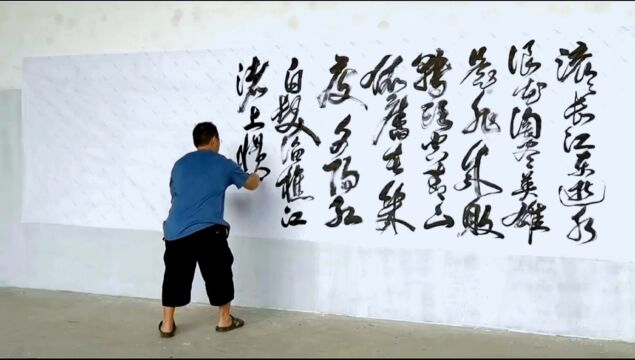 滚滚长江东逝水
浪花淘尽英雄
是非成败
转头空青山
依舊在几
度夕阳红
白髮渔樵江
渚上惯